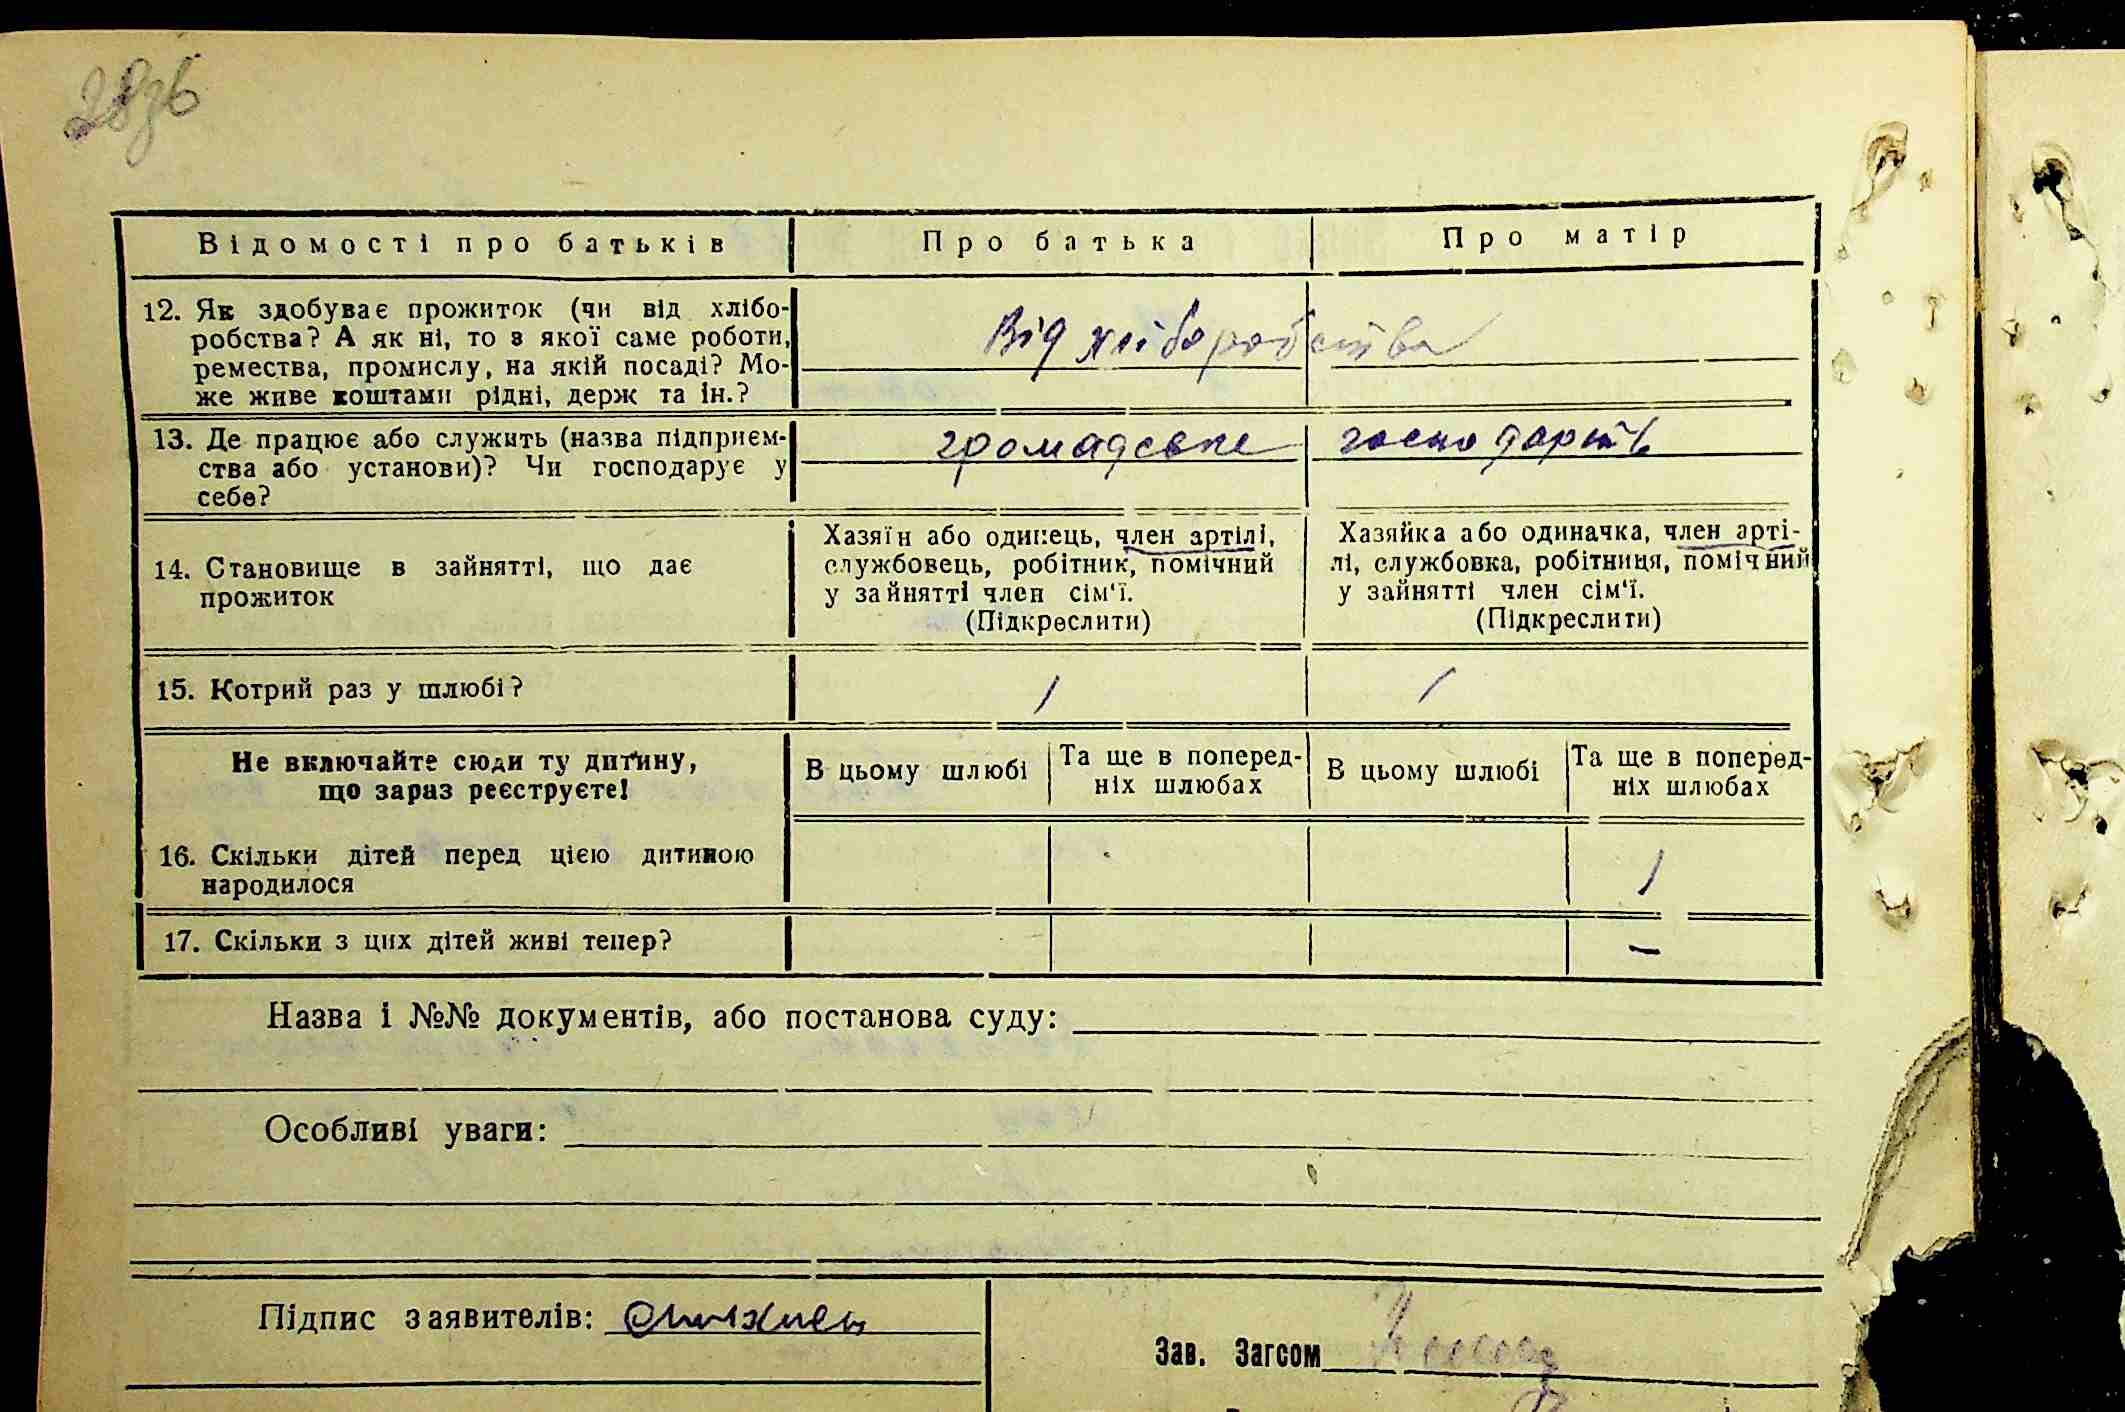 28зв
Відомості про батьків Про батька Про матір
12. Як здобуває прожиток (чи від хлібо-
робства? А як ні, то з якої саме роботи,
ремества, промислу, на якій посаді? Мо-
же живе коштами рідні, держ та ін.?
Від хліборобства
13. Де працює або служить (назва підприєм-
ства або установи)? Чи господарує у
себе?
громадське господарств
14. Становище в зайнятті, що дає
прожиток
Хазяїн або одинець, член артілі,
службовець, робітник, помічний
у зайнятті член сім'ї.
(Підкреслити)
Хазяйка або одиначка, член арті-
лі, службовка, робітниця, помічний
у зайнятті член сім'ї.
(Підкреслити)
15. Котрий раз у шлюбі? 1 1
Не включайте сюди ту дитину,
що зараз реєструєте!
В цьому шлюбі
Та ще в поперед-
ніх шлюбах
В цьому шлюбі
Та ще в поперед-
ніх шлюбах
16. Скільки дітей перед цією дитиною
народилося
1
17. Скільки з цих дітей живі тепер? –
Назва і №№ документів, або постанова суду:
Особливі уваги:
Підпис заявителів:
Зав. Загсом